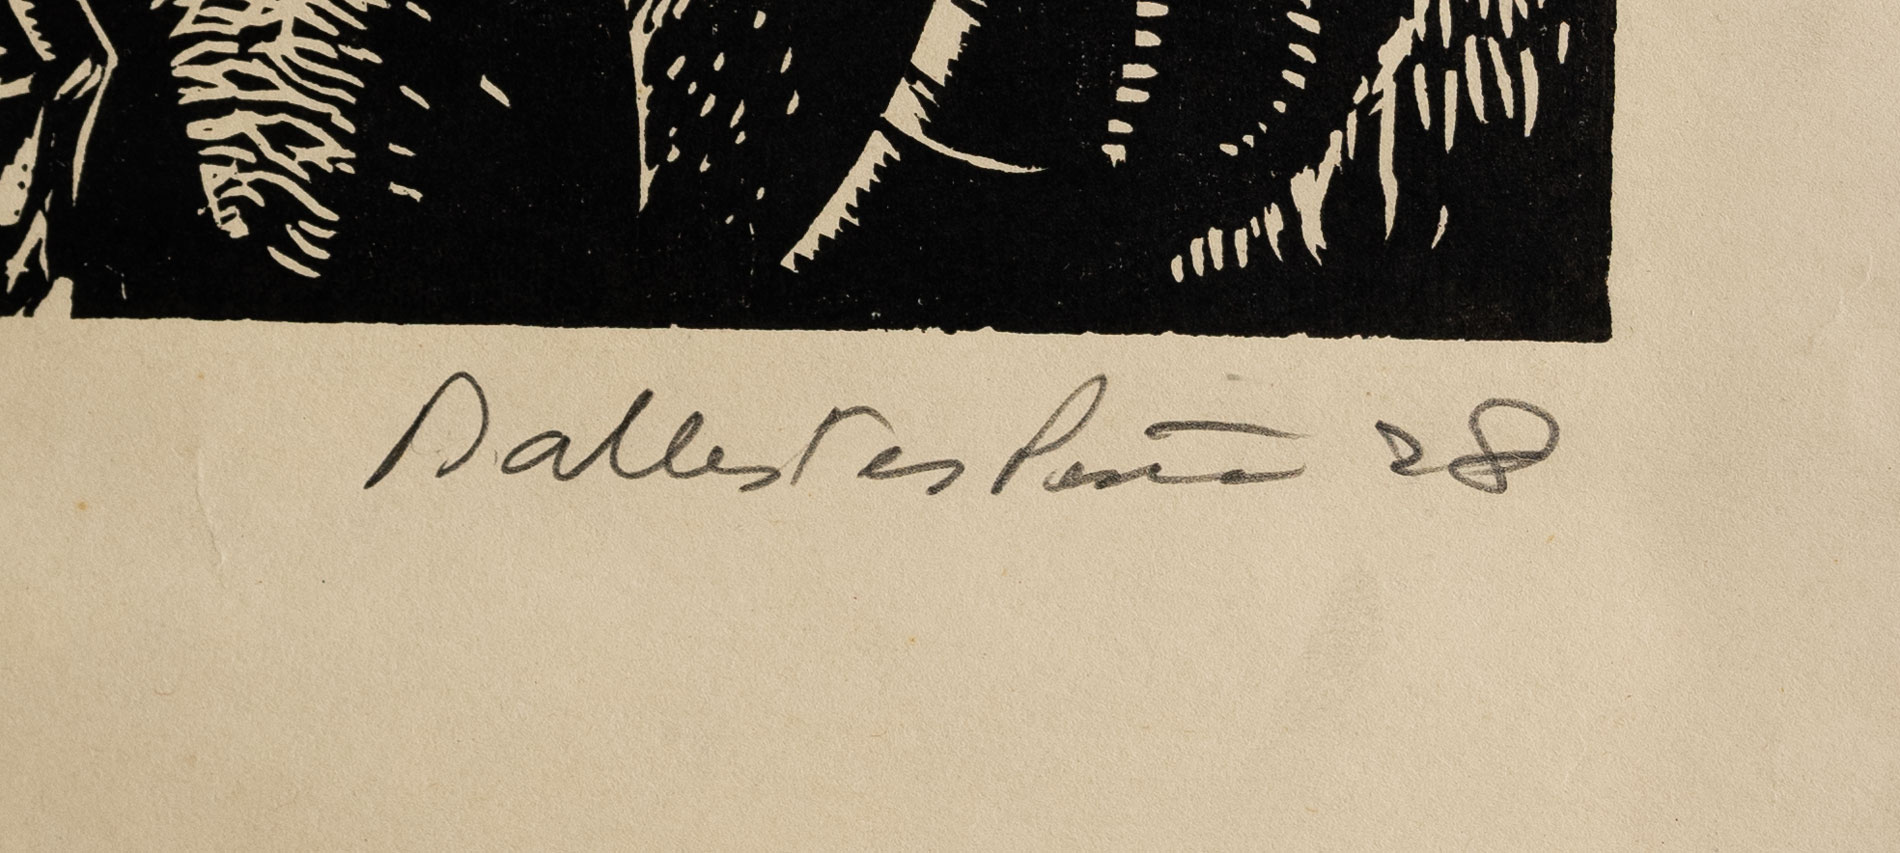 Ballester Peña 28